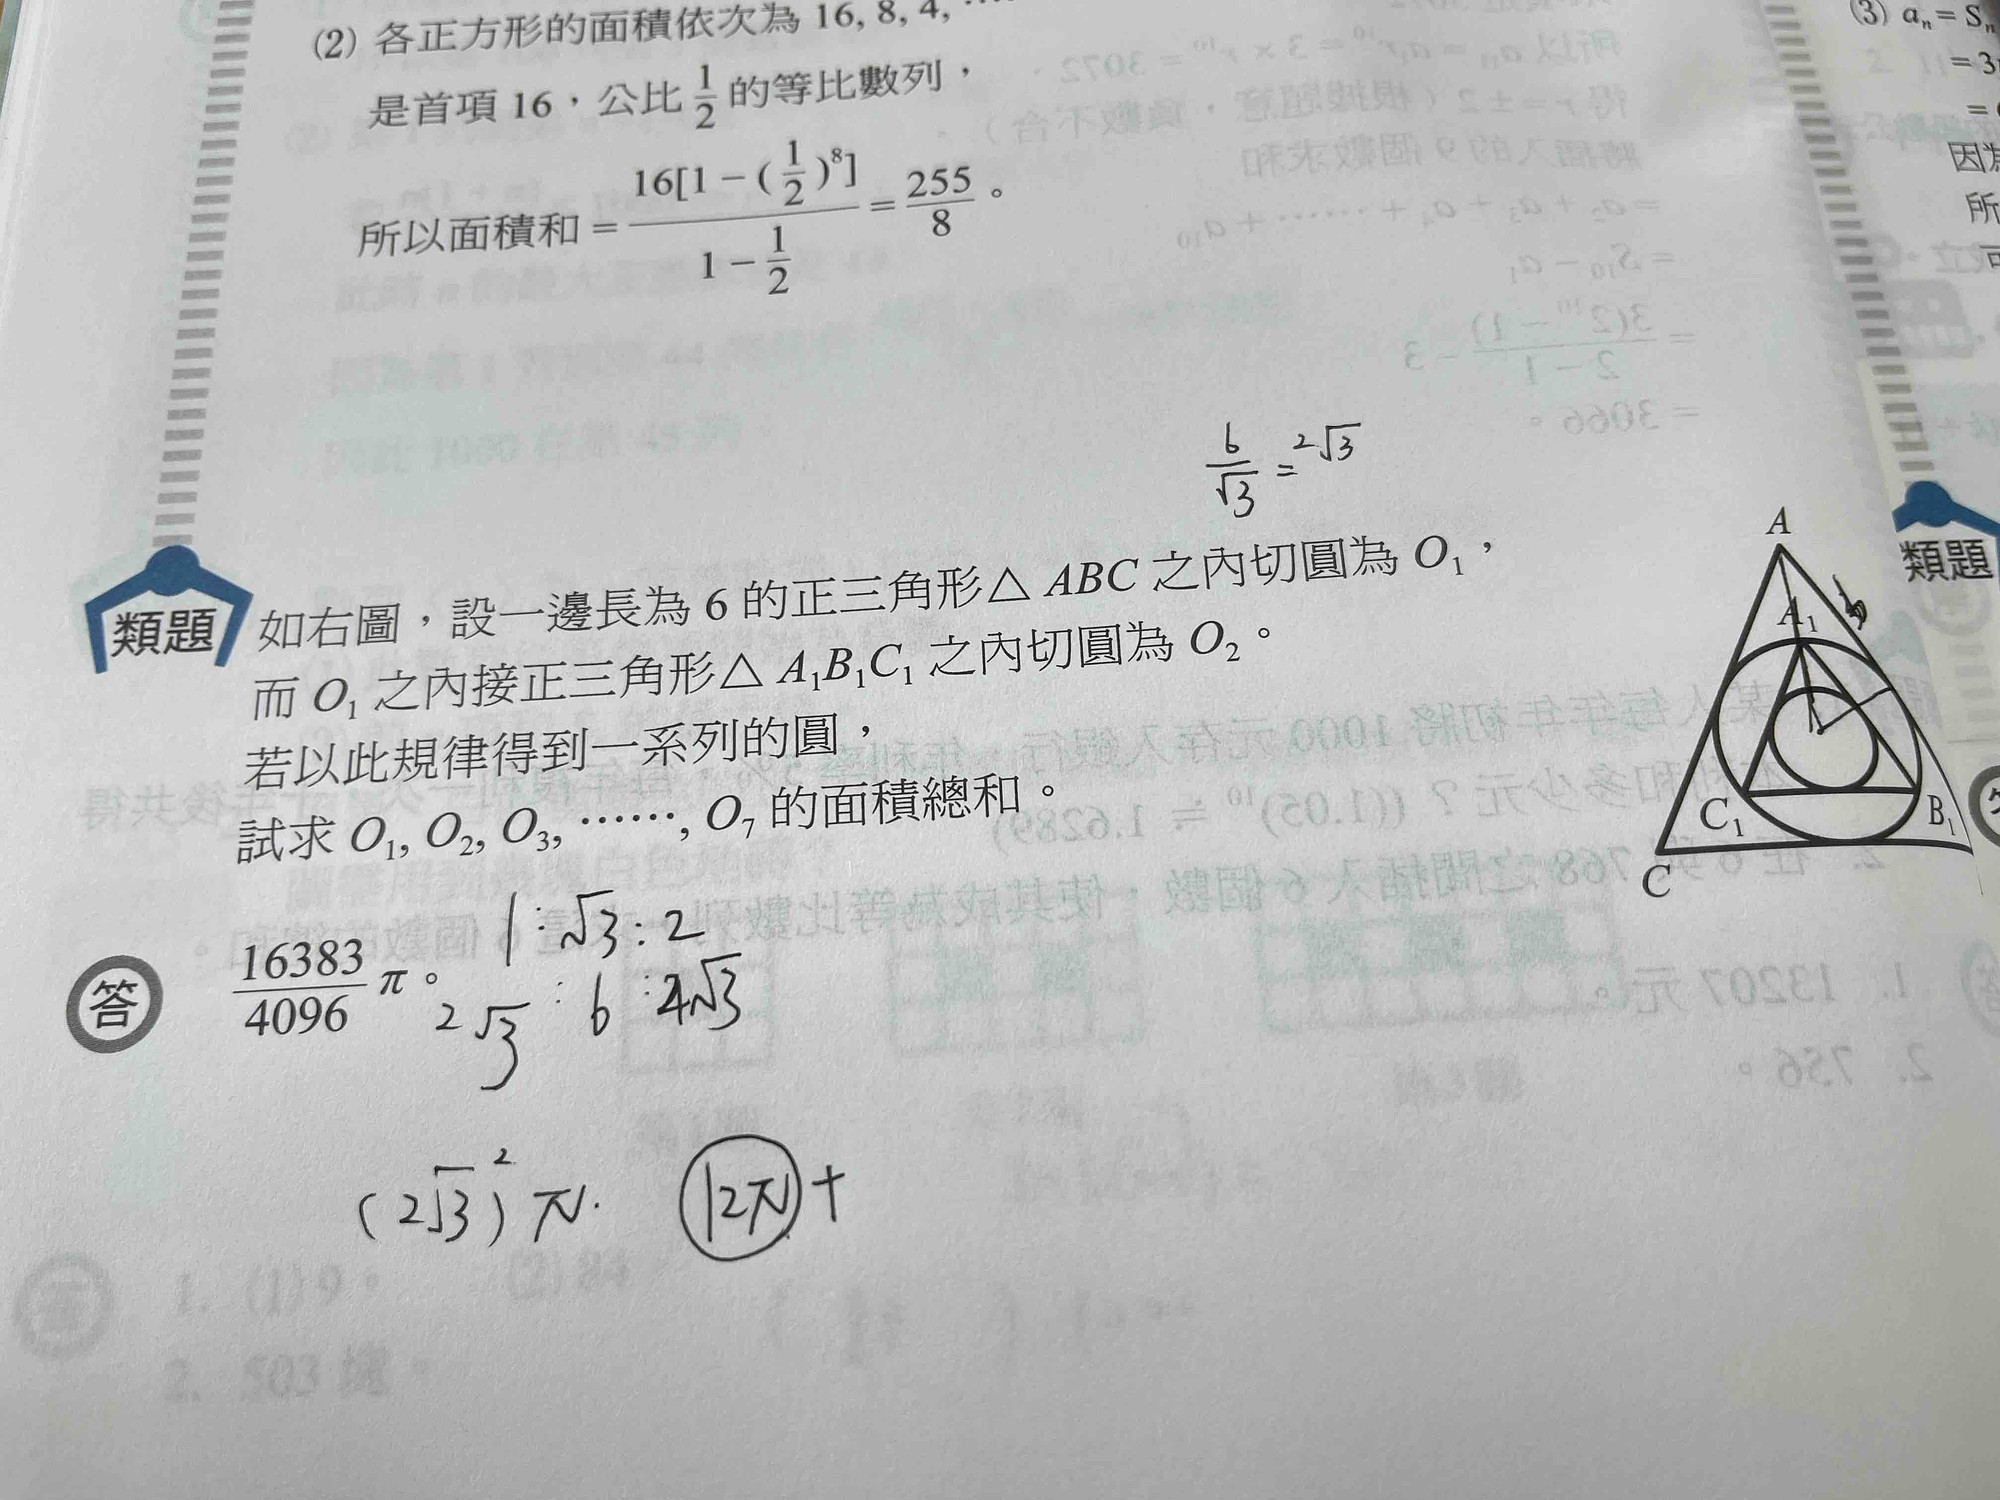 (2) 各正方形的面積依次為 16, 8, 4, ⋯
是首項 16，公比 1/2 的等比數列，
所以面積和 = 16[1 − (1/2)⁸] / (1 − 1/2) = 255/8。
6/√3 = 2√3
類題
如右圖，設一邊長為 6 的正三角形△ABC 之內切圓為 O₁，
而 O₁ 之內接正三角形△A₁B₁C₁ 之內切圓為 O₂。
若以此規律得到一系列的圓，
試求 O₁, O₂, O₃, ⋯⋯, O₇ 的面積總和。
A
A₁
C₁
B₁
C
答
16383/4096 π。
1 : √3 : 2
2√3 : 6 : 4√3
(2√3)² π.
12π +
(3) aₙ = Sₙ
= 3
=
因為
所
類題